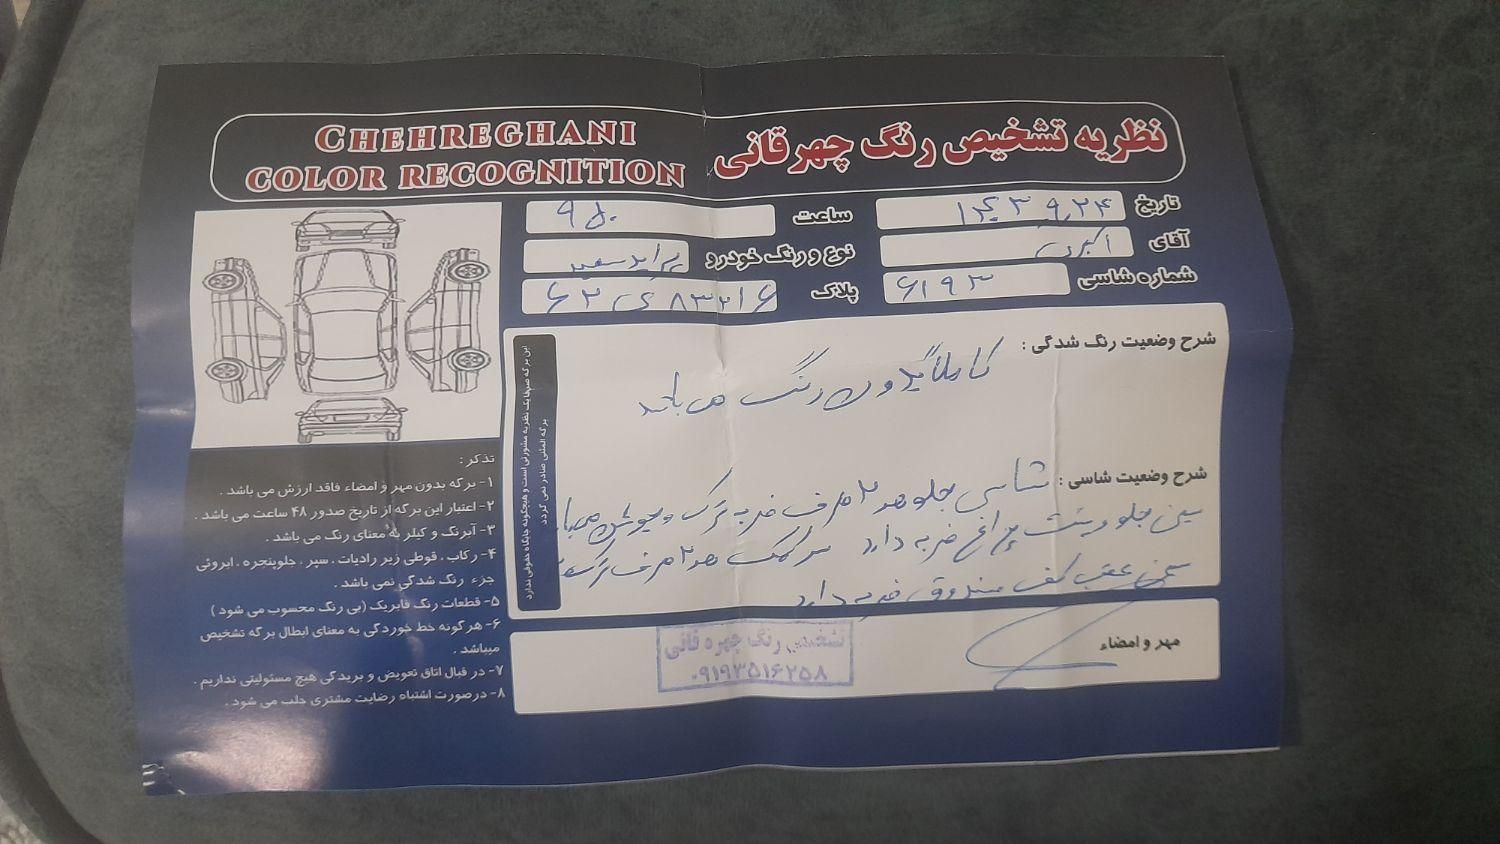 CHEHREGHANI
COLOR RECOGNITION
نظریه تشخیص رنگ چهرقانی
تاریخ ۱۴۰۳ ۹٫۲۴
ساعت ۹ ۵۰
آقای اکبری
نوع و رنگ خودرو پراید سفید
شماره شاسی ۶۱۹۳
پلاک
شرح وضعیت رنگ شدگی :
کاملا بدون رنگ می باشد
شرح وضعیت شاسی : شاسی جلو هر ۲ طرف ضربه ترک و جوش می باشد
سینی جلو و پشت چراغ ضربه دارد سر کمک هر ۲ طرف ترک
سینی عقب کف صندوق ضربه دارد
این برگه صرفا یک نظریه مشورتی است و هیچگونه جایگاه حقوقی ندارد
برگه المثنی صادر نمی گردد
مهر و امضاء
تشخیص رنگ چهره قانی
۰۹۱۹۳۵۱۶۲۵۸
تذکر :
۱- برگه بدون مهر و امضاء فاقد ارزش می باشد .
۲- اعتبار این برگه از تاریخ صدور ۴۸ ساعت می باشد .
۳- آبرنگ و کیلر به معنای رنگ می باشد .
۴- رکاب ، قوطی زیر رادیات ، سپر ، جلوپنجره ، ابروئی
جزء رنگ شدگی نمی باشد .
۵- قطعات رنگ فابریک (بی رنگ محسوب می شود )
۶- هرگونه خط خوردگی به معنای ابطال برگه تشخیص
میباشد .
۷- در قبال اتاق تعویض و بریدگی هیچ مسئولیتی نداریم .
۸- درصورت اشتباه رضایت مشتری جلب می شود .